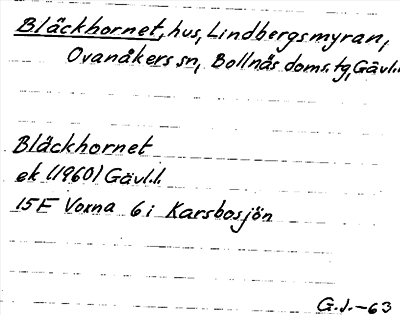 Bläckhornet, hus, Lindbergsmyran,
Ovanåkers sn, Bollnäs doms. tg, Gävl.l.
Bläckhornet
ek (1960) Gävl.l.
15F Voxna 6i Karsbosjön
G.J.-63